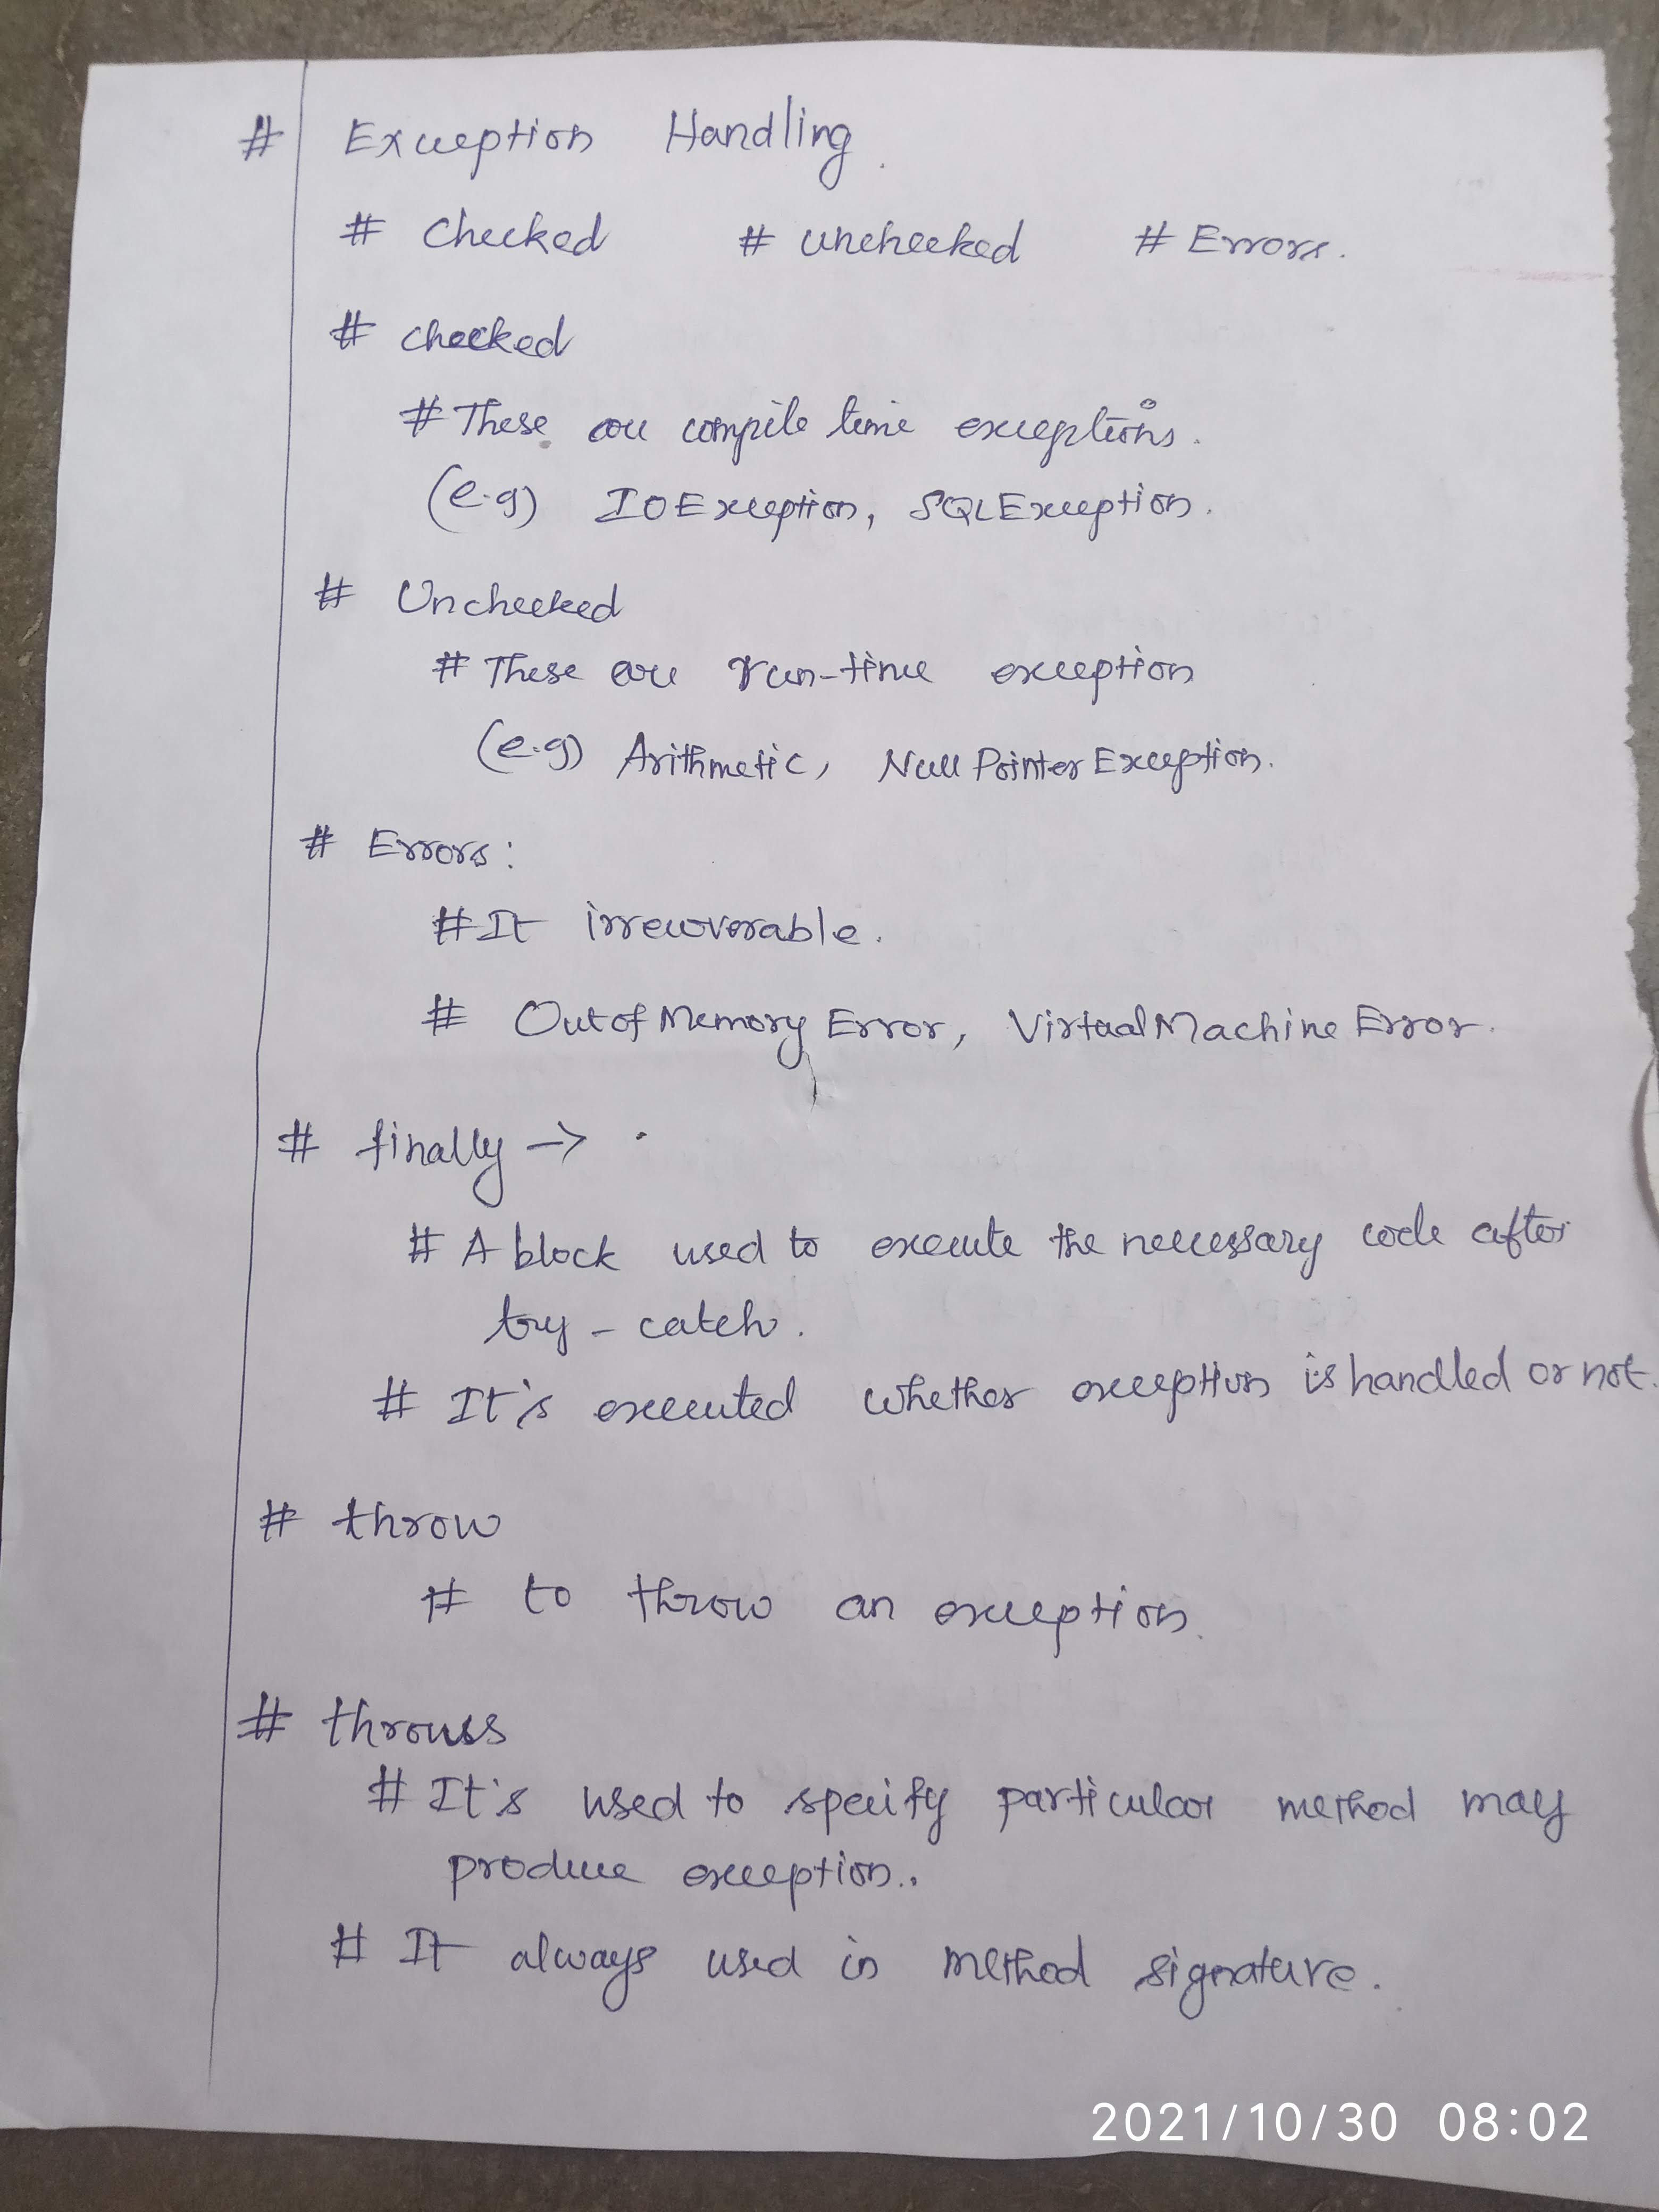 # Exception Handling.
# Checked # unchecked # Errors.
# checked
# These are compile time exceptions.
(e.g) IOException, SQLException.
# Unchecked
# These are run-time exception
(e.g) Arithmetic, NullPointerException.
# Errors:
# It irrecoverable.
# OutofMemoryError, VirtualMachineError.
# finally →
# A block used to execute the necessary code after
try - catch.
# It's executed whether exception is handled or not.
# throw
# to throw an exception.
# throws
# It's used to specify particular method may
produce exception..
# It always used in method signature.
2021/10/30 08:02